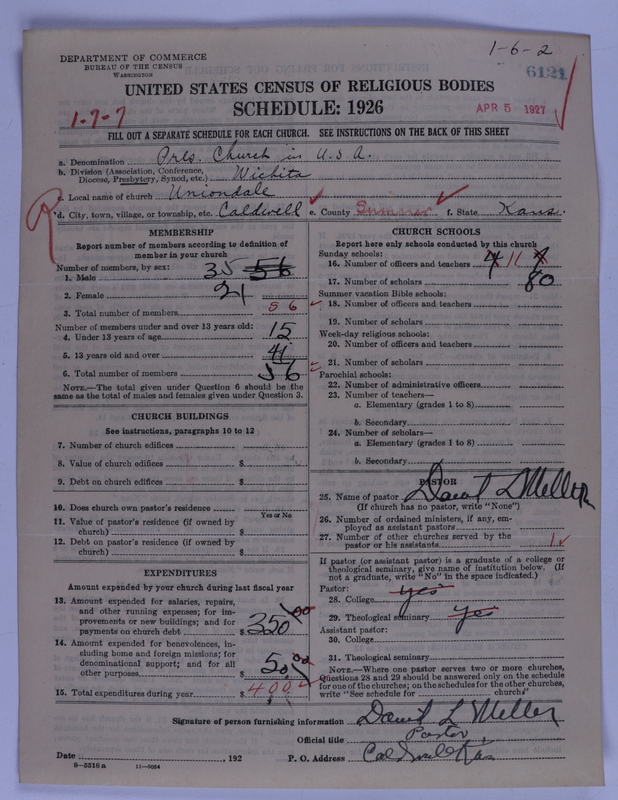 1-6-2
DEPARTMENT OF COMMERCE
BUREAU OF THE CENSUS
WASHINGTON
6121
UNITED STATES CENSUS OF RELIGIOUS BODIES
SCHEDULE: 1926
APR 5 1927
1-7-7
FILL OUT A SEPARATE SCHEDULE FOR EACH CHURCH. SEE INSTRUCTIONS ON THE BACK OF THIS SHEET
a. Denomination Prls. Church in U.S.A.
b. Division (Association, Conference, Diocese, Presbytery, Synod, etc.) Wichita
c. Local name of church Uniondale
R
d. City, town, village, or township, etc. Caldwell e. County Sumner f. State Kans.
MEMBERSHIP
Report number of members according to definition of
member in your church
Number of members, by sex:
1. Male 35 56
2. Female 21
3. Total number of members 56
Number of members under and over 13 years old:
4. Under 13 years of age 15
5. 13 years old and over 41
6. Total number of members 56
NOTE.—The total given under Question 6 should be the
same as the total of males and females given under Question 3.
CHURCH BUILDINGS
See instructions, paragraphs 10 to 12
7. Number of church edifices
8. Value of church edifices $
9. Debt on church edifices $
10. Does church own pastor's residence
Yes or No
11. Value of pastor's residence (if owned by
church) $
12. Debt on pastor's residence (if owned by
church) $
EXPENDITURES
Amount expended by your church during last fiscal year
13. Amount expended for salaries, repairs,
and other running expenses; for im-
provements or new buildings; and for
payments on church debt $ 350 00
14. Amount expended for benevolences, in-
cluding home and foreign missions; for
denominational support; and for all
other purposes $ 50.00
15. Total expenditures during year $ 400
CHURCH SCHOOLS
Report here only schools conducted by this church
Sunday schools:
16. Number of officers and teachers 11
17. Number of scholars 80
Summer vacation Bible schools:
18. Number of officers and teachers
19. Number of scholars
Week-day religious schools:
20. Number of officers and teachers
21. Number of scholars
Parochial schools:
22. Number of administrative officers
23. Number of teachers—
a. Elementary (grades 1 to 8)
b. Secondary
24. Number of scholars—
a. Elementary (grades 1 to 8)
b. Secondary
PASTOR
25. Name of pastor David L Meller
(If church has no pastor, write "None")
26. Number of ordained ministers, if any, em-
ployed as assistant pastors
27. Number of other churches served by the
pastor or his assistants 1
If pastor (or assistant pastor) is a graduate of a college or
theological seminary, give name of institution below. (If
not a graduate, write "No" in the space indicated.)
Pastor:
28. College yes
29. Theological seminary yes
Assistant pastor:
30. College
31. Theological seminary
NOTE.—Where one pastor serves two or more churches,
Questions 28 and 29 should be answered only on the schedule
for one of the churches; on the schedules for the other churches,
write "See schedule for church"
Signature of person furnishing information David L Meller
Official title Pastor
Date , 192 P. O. Address Caldwell Kas
8-5518a 11-9054